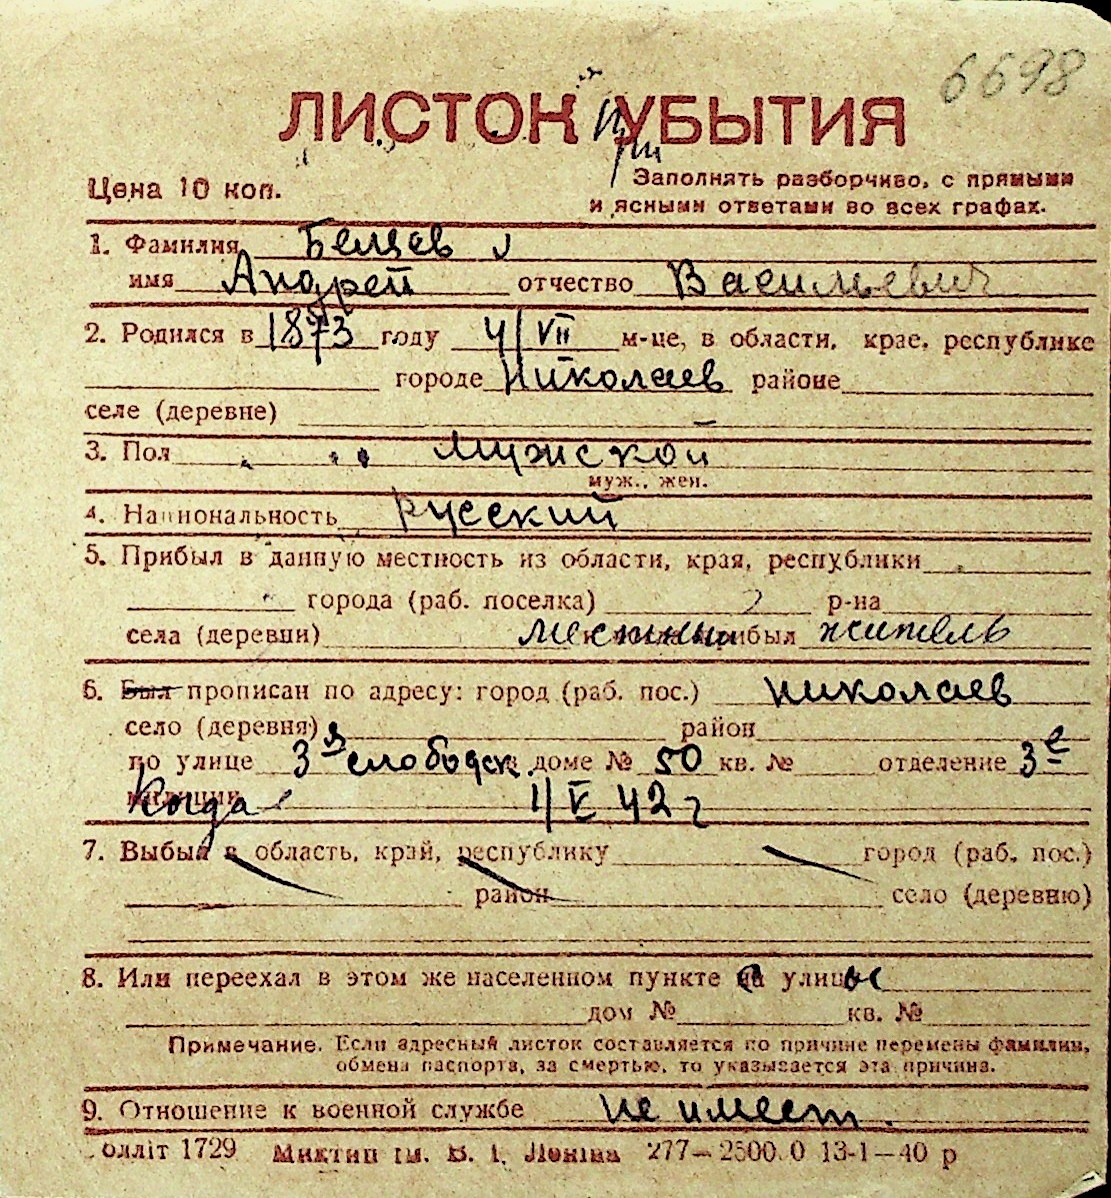 6698
ЛИСТОК УБЫТИЯ
Цена 10 коп.
Заполнять разборчиво, с прямыми
и ясными ответами во всех графах.
1. Фамилия Белцев
имя Андрей отчество Васильевич
2. Родился в 1873 году 4/VII м-це, в области, крае, республике
городе Николаев районе
селе (деревне)
3. Пол мужской
муж., жен.
4. Национальность русский
5. Прибыл в данную местность из области, края, республики
города (раб. поселка) р-на
села (деревни) местный прибыл житель
6. Был прописан по адресу: город (раб. пос.) Николаев
село (деревня) район
по улице 3я слободск. доме № 50 кв. № отделение 3е
милиции Когда 1/V 42 г
7. Выбыл в область, край, республику город (раб. пос.)
район село (деревню)
8. Или переехал в этом же населенном пункте с улицы
дом № кв. №
Примечание. Если адресный листок составляется по причине перемены фамилии,
обмена паспорта, за смертью, то указывается эта причина.
9. Отношение к военной службе не имеет.
олліт 1729 ім. В. І. Леніна 277—2500.0 13-1—40 р